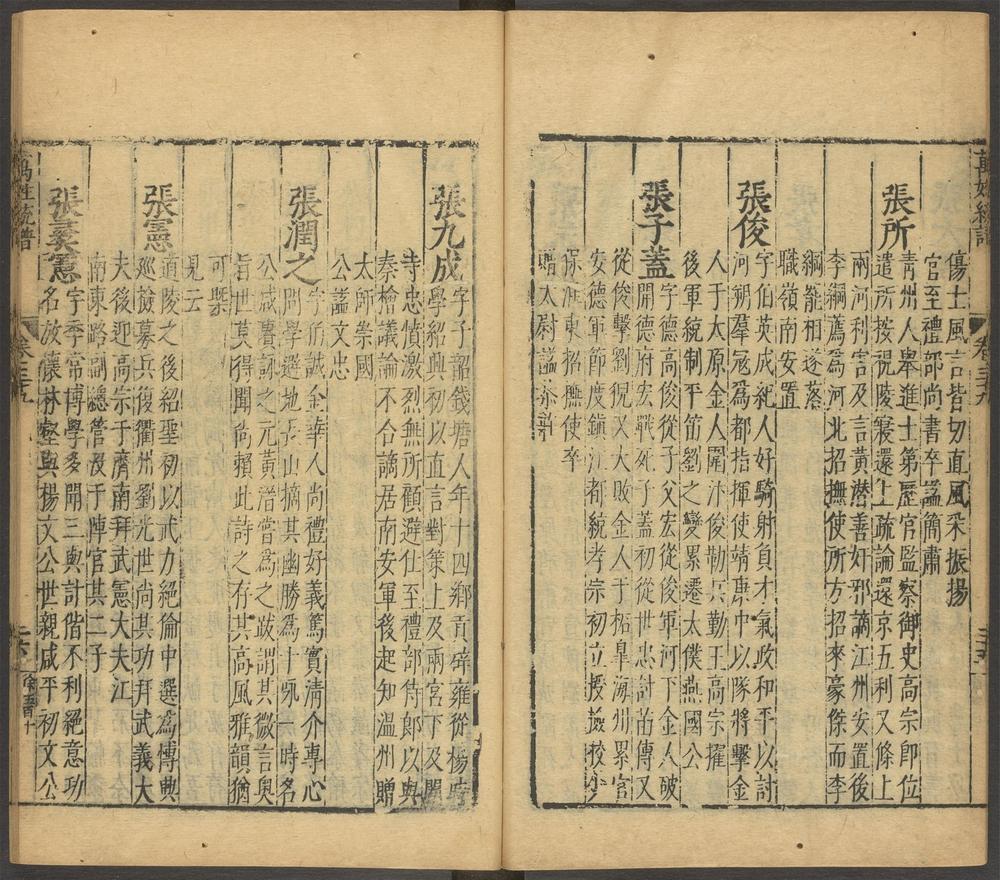 萬姓統譜
卷三十九
三十五
傷士風言皆切直風采振揚
官至禮部尚書卒謚簡肅
張所
青州人舉進士第歷官監察御史高宗即位
遣所按視陵寢還上疏論還京五利又條上
兩河利害及言黃潛善奸邪謫江州安置後
李綱薦爲河北招撫使所方招來豪傑而李
綱罷相遂落
職嶺南安置
張俊
字伯英成紀人好騎射負才氣政和平以討
河朔羣寇爲都指揮使靖康中以隊將擊金
人于太原金人圍汴俊勒兵勤王高宗擢
後軍統制平苗劉之變累遷太僕燕國公
張子蓋
字德高俊從子父宏從俊軍河下金人破
開德府宏戰死子蓋初從世忠討苗傳又
從俊擊劉猊又大敗金人于拓臯海州累官
安德軍節度鎮江都統孝宗初立授檢校少
保淮東招撫使卒
贈太尉謚恭
張九成
字子韶錢塘人年十四鄉貢辟雍從楊
學紹興初以直言對策上及兩宮下及閹
寺忠憤激烈無所顧避仕至禮部侍郎以與
秦檜議論不合謫居南安軍後起知溫州贈
太師崇國
公謚文忠
張潤之
字伯誠金華人尚禮好義篤實清介專心
問學選地長山摘其幽勝爲十詠一時名
公咸賡詠之元黃溍嘗爲之跋謂其微言奧
旨世莫得聞尚賴此詩之存其高風雅韻猶
可槩
見云
張憲
道陵之後紹聖初以武力絕倫中選爲博興
廵檢募兵復衢州劉光世尚其功拜武義大
夫後迎高宗于濟南拜武憲大夫江
南東路副總管歿于陣官其二子
張
憲
字季常博學多聞三與計偕不利絕意功
名放懷林壑與楊文公世親咸平初文公
萬姓統譜
卷三十五
二六